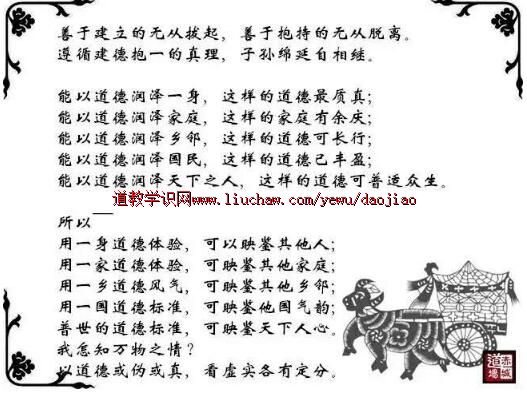 善于建立的无从拔起，善于抱持的无从脱离。
遵循建德抱一的真理，子孙绵延自相继。
能以道德润泽一身，这样的道德最质真；
能以道德润泽家庭，这样的家庭有余庆；
能以道德润泽乡邻，这样的道德可长行；
能以道德润泽国民，这样的道德已丰盈；
能以道德润泽天下之人，这样的道德可普适众生。
道教学识网www.liuchaw.com/yewu/daojiao
所以
用一身道德体验，可以映鉴其他人；
用一家道德体验，可映鉴其他家庭；
用一乡道德风气，可映鉴其他乡邻；
用一国道德标准，可映鉴他国气韵；
普世的道德标准，可映鉴天下人心。
我怎知万物之情？
以道德或伪或真，看虚实各有定分。